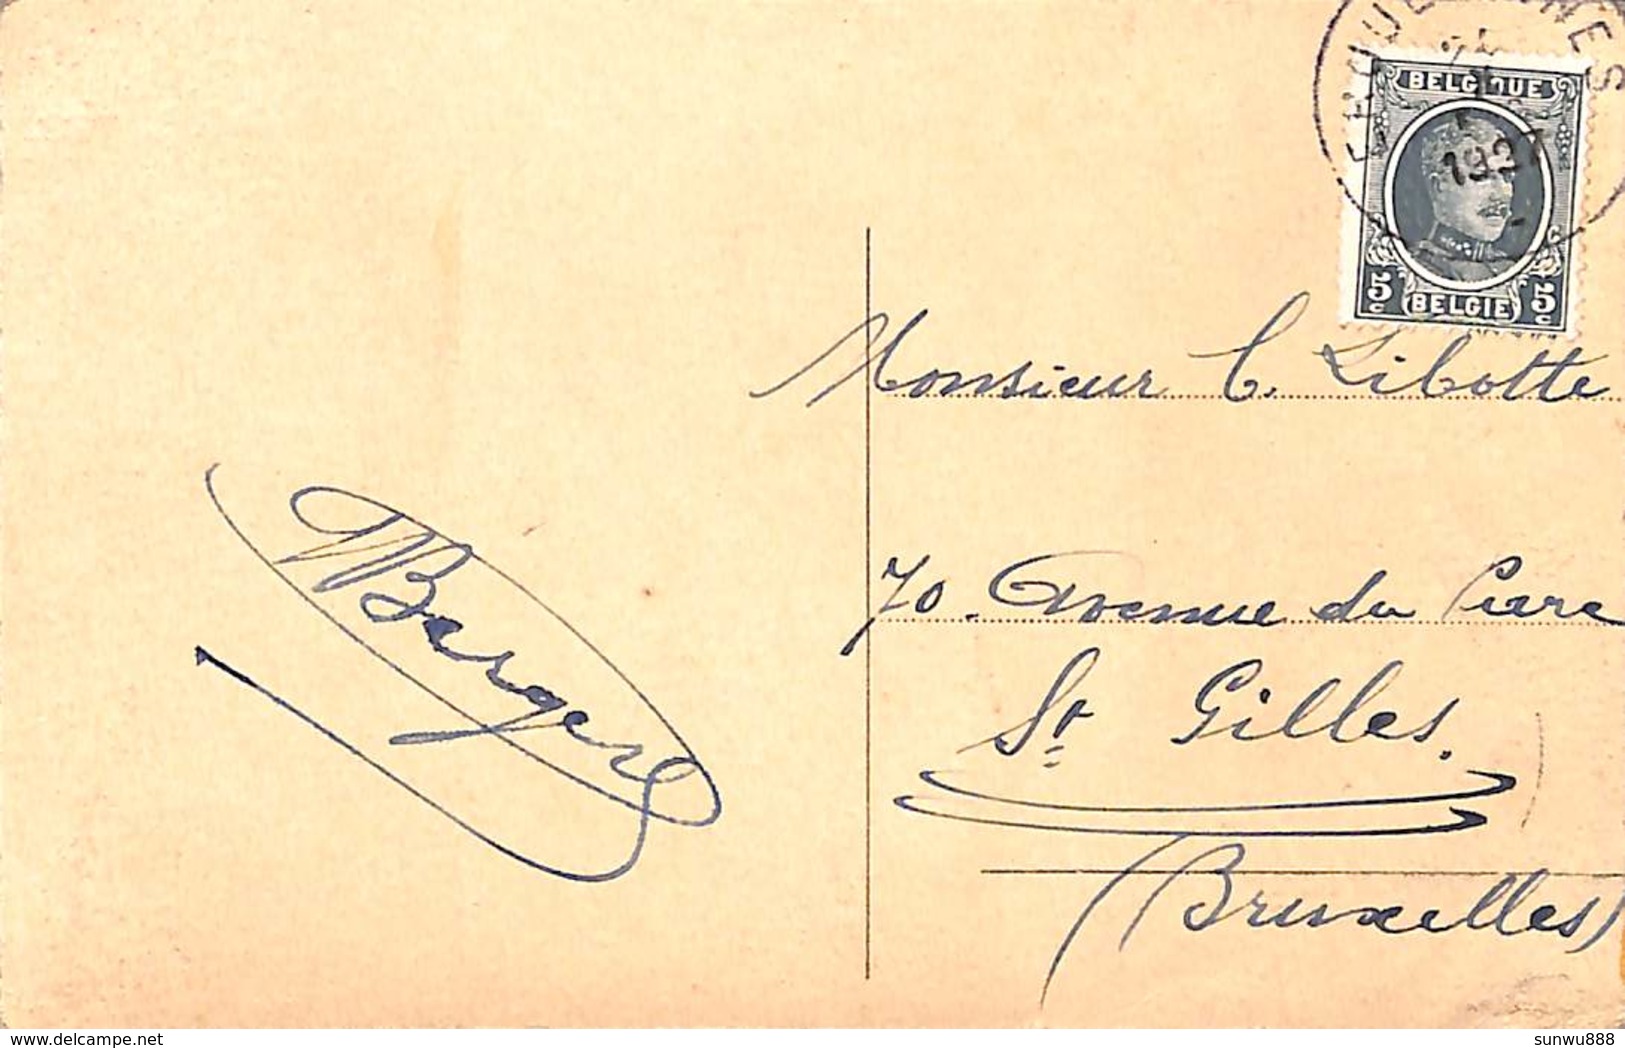 BELGIQUE
1927
5c BELGIE 5c
Monsieur C. Libotte
70. Avenue du Parc
St Gilles.
(Bruxelles)
Berger
delcampe.net
sunwu888